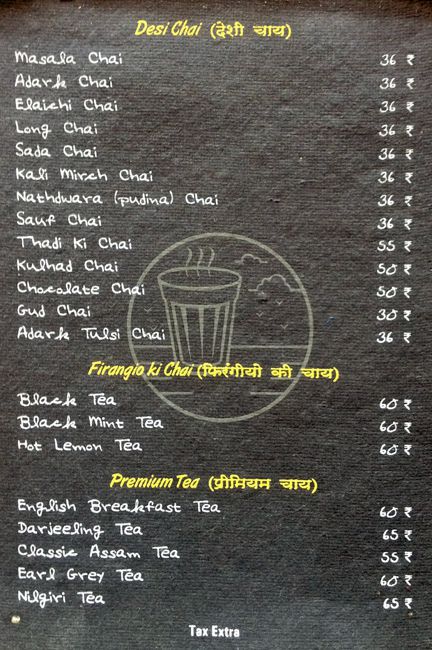 Desi Chai (देशी चाय)
Masala Chai 36 ₹
Adark Chai 36 ₹
Elaichi Chai 36 ₹
Long Chai 36 ₹
Sada Chai 36 ₹
Kali Mirch Chai 36 ₹
Nathdwara (pudina) Chai 36 ₹
Sauf Chai 36 ₹
Thadi Ki Chai 55 ₹
Kulhad Chai 50 ₹
Chocolate Chai 50 ₹
Gud Chai 30 ₹
Adark Tulsi Chai 36 ₹
Firangio ki Chai (फिरंगीयो की चाय)
Black Tea 60 ₹
Black Mint Tea 60 ₹
Hot Lemon Tea 60 ₹
Premium Tea (प्रीमियम चाय)
English Breakfast Tea 60 ₹
Darjeeling Tea 65 ₹
Classic Assam Tea 55 ₹
Earl Grey Tea 60 ₹
Nilgiri Tea 65 ₹
Tax Extra